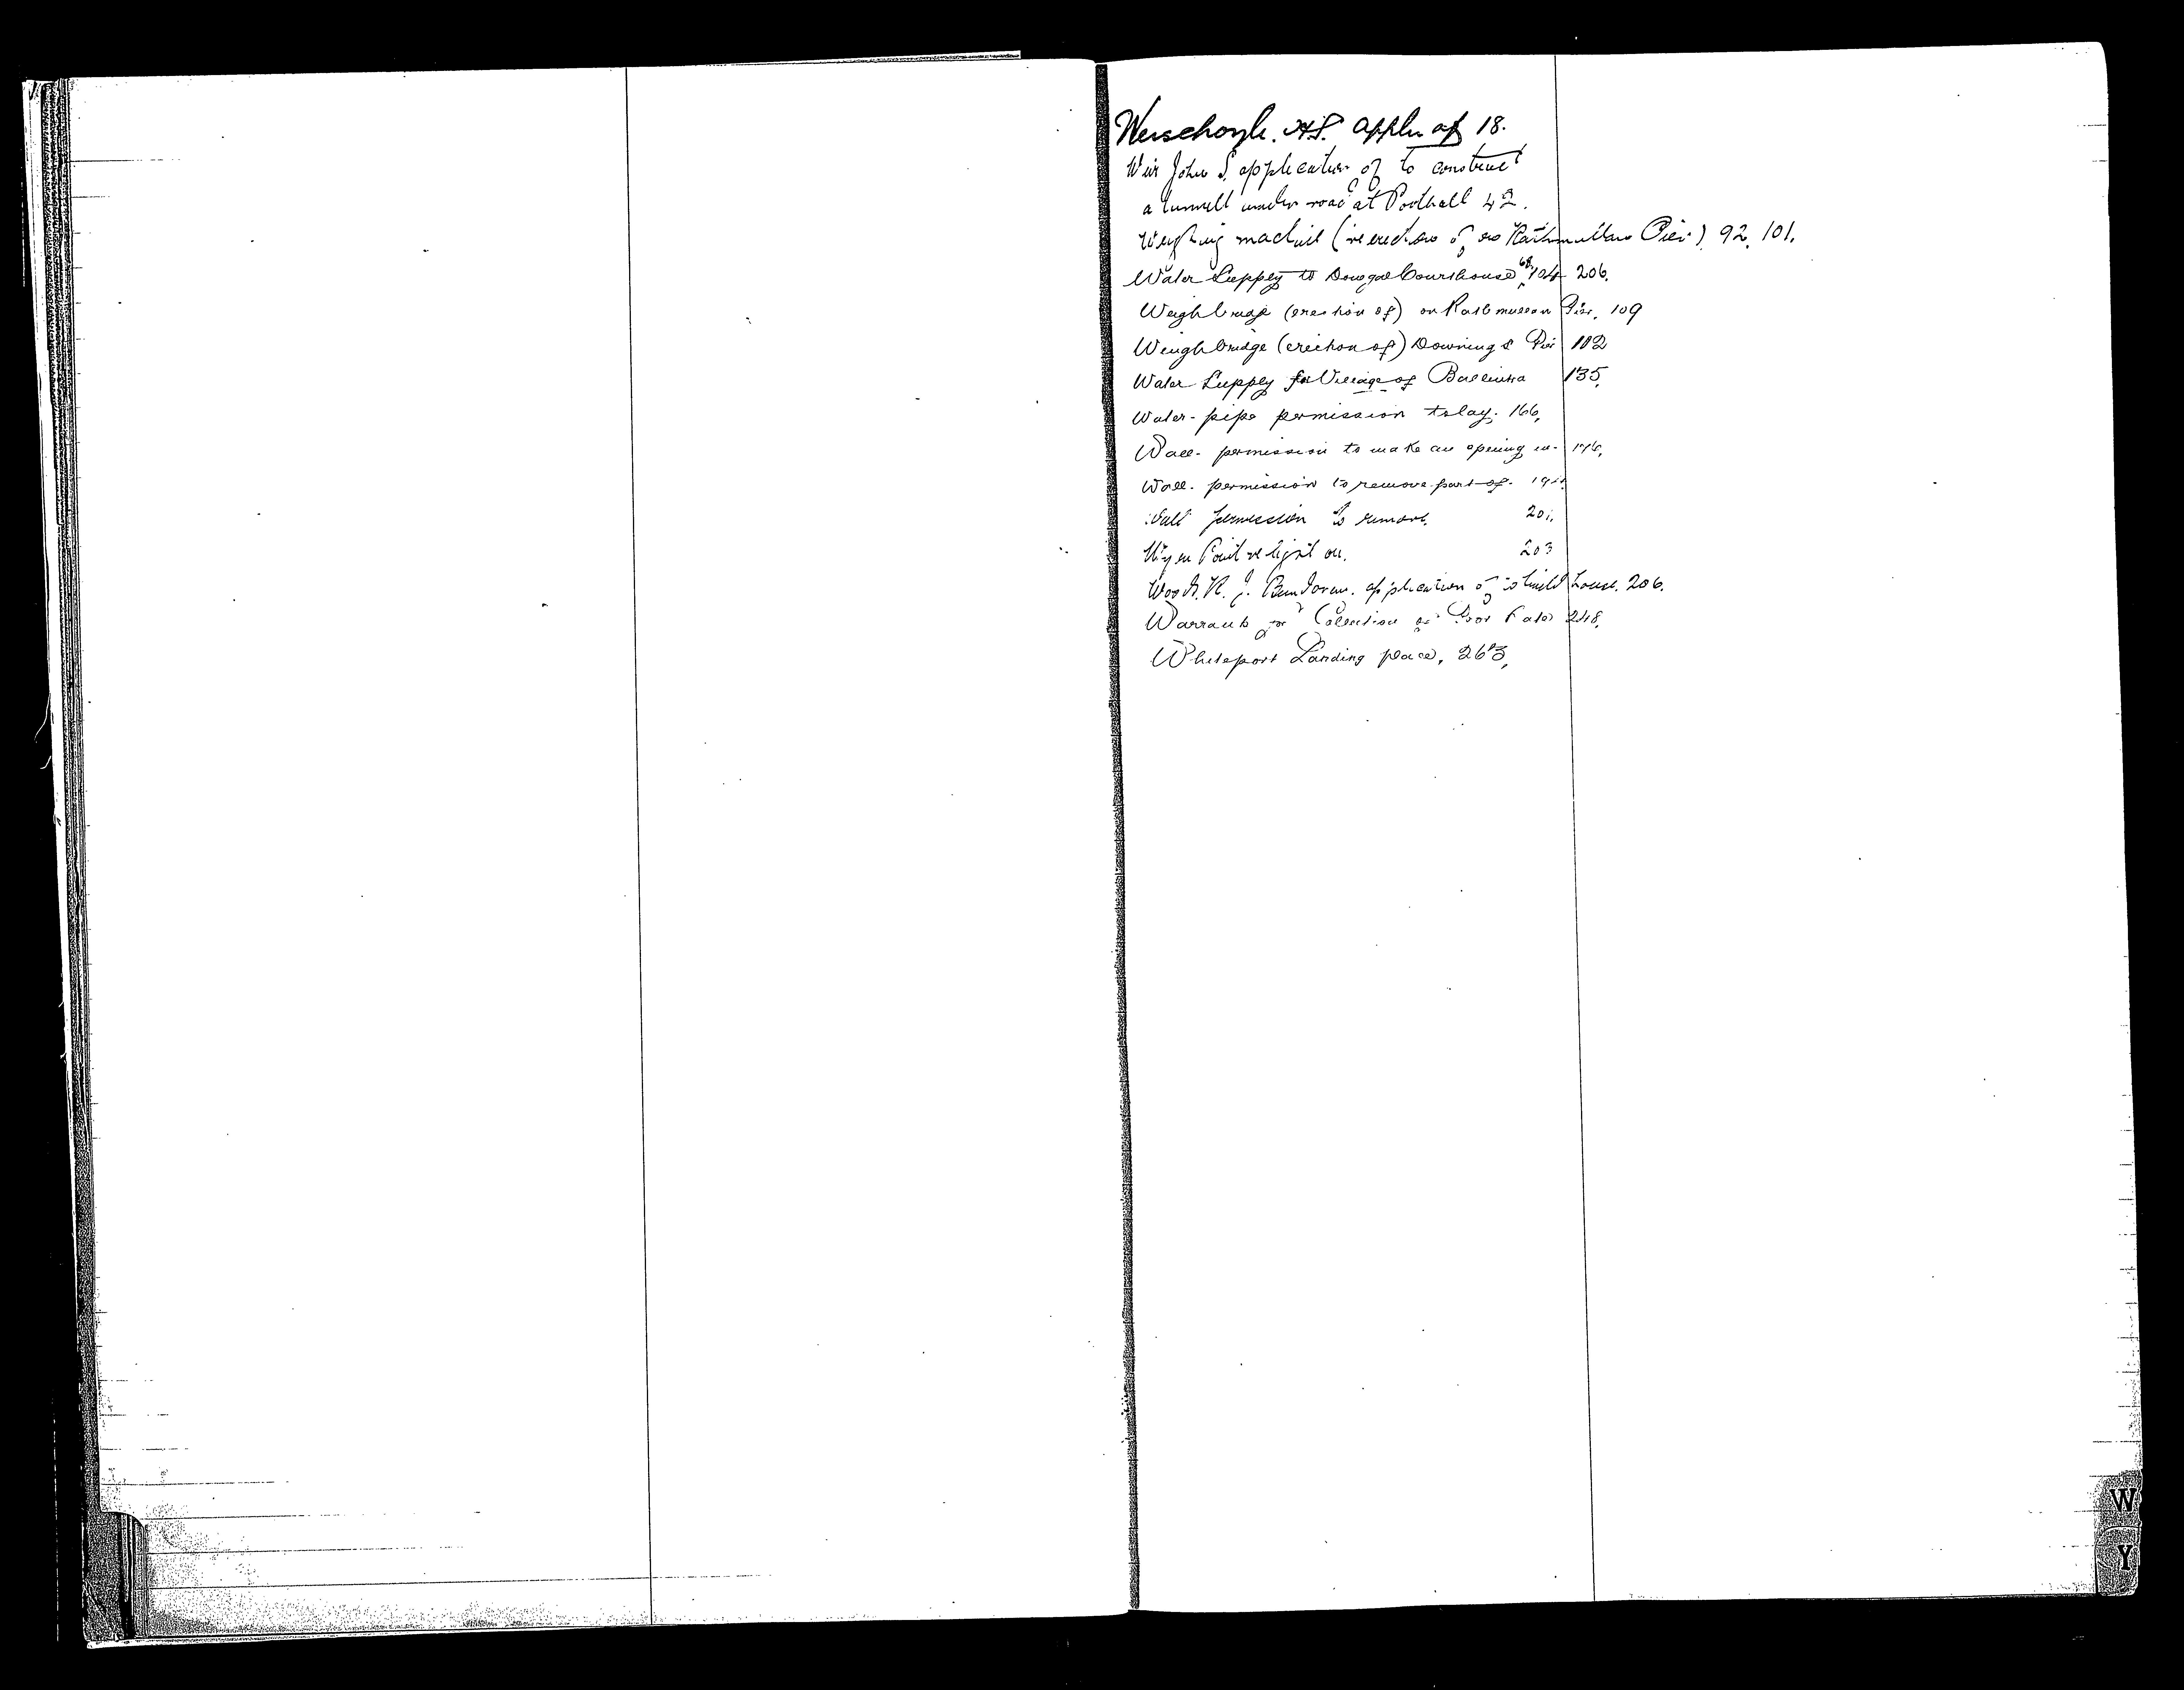 Werschoyle. H.S. appln of 18.
Weir John S. application of to construct
a tunnell under road at Porthall 42.
Weighing machine (re erection of on Rathmullan Pier) 92, 101.
Water Supply to Donegal Courthouse 68, 104 206.
Weighbridge (erection of) on Rathmullan Pier, 109
Weighbridge (erection of) Downings Pier 102
Water Supply for Village of Ballintra 135,
Water-pipe permission to lay. 166,
Wall- permission to make an opening in-
Wall- permission to remove part of-
Wall permission to remove.
Point re light on. 203
Wood. R. J. Bundoran. application of to build house. 206.
Warrants for Collection of Poor Rates 248.
Whiteport Landing place, 263,
W
Y